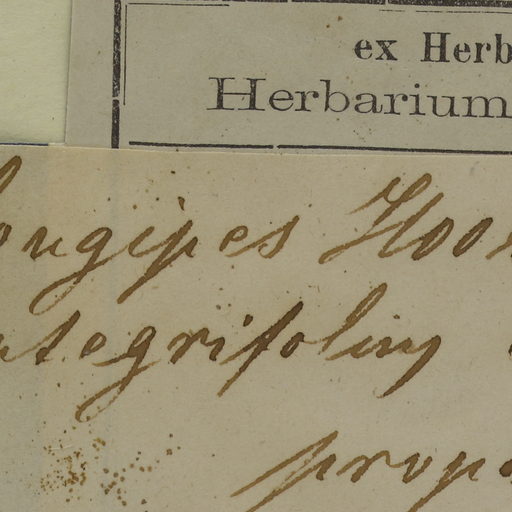 ex Herb
Herbarium
longipes Hook
ntegrifolium
prope